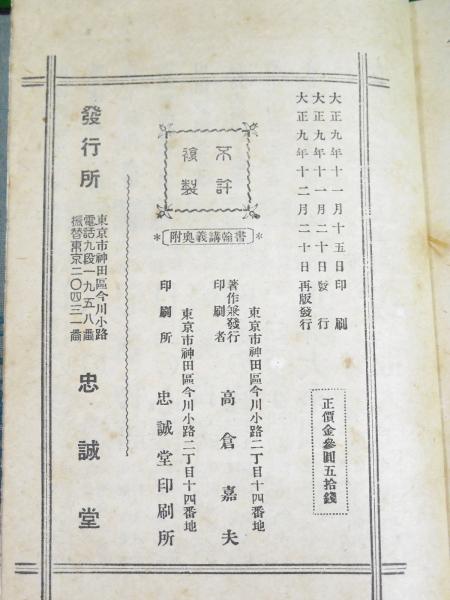 大正九年十一月十五日印刷
大正九年十一月二十日發行
大正九年十二月二十日再版發行
正價金參圓五拾錢
不許
複製
附奧義講翰書
東京市神田區今川小路二丁目十四番地
著作兼發行
印刷者
高倉嘉夫
東京市神田區今川小路二丁目十四番地
印刷所
忠誠堂印刷所
發行所
東京市神田區今川小路
電話九段一九五八番
振替東京二〇四三二番
忠誠堂